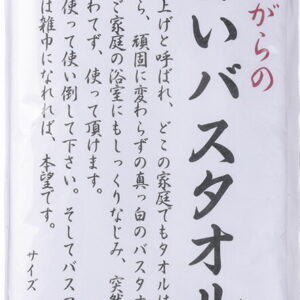 がらの
いバスタオル
上げと呼ばれ、どこの家庭でもタオルは
ら、頑固に変わらずの真っ白のバスタオ
ご家庭の浴室にもしっくりなじみ、突然
わてず、使って頂けます。
使って使い倒して下さい。そしてバスタ
は雑巾になれれば、本望です。
サイズ